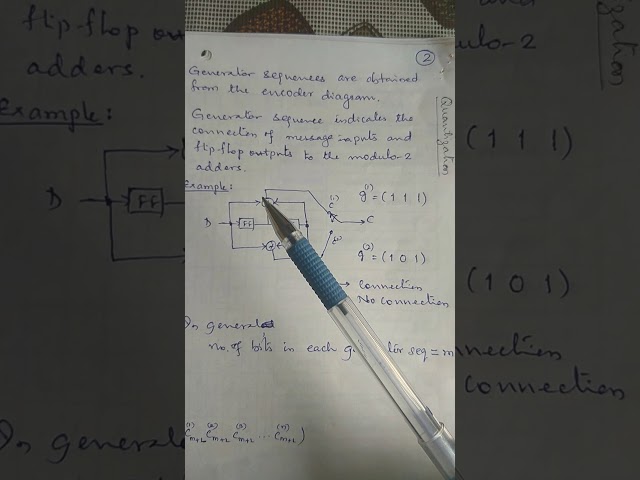 2
Generator sequences are obtained
from the encoder diagram.
Generator sequence indicates the
connection of message inputs and
flip-flop outputs to the modulo-2
adders.
Example:
D FF
C(1) C
g(1) = (1 1 1)
g(2) = (1 0 1)
→ connection
No connection
In general
no. of bits in each seq = m
C(1)m+L C(2)m+L C(3)m+L ... C(n)m+L)
Quantization
flip-flop outputs
modulo-2
adders.
Example:
D FF
(1 1 1)
(1 0 1)
connection
In general